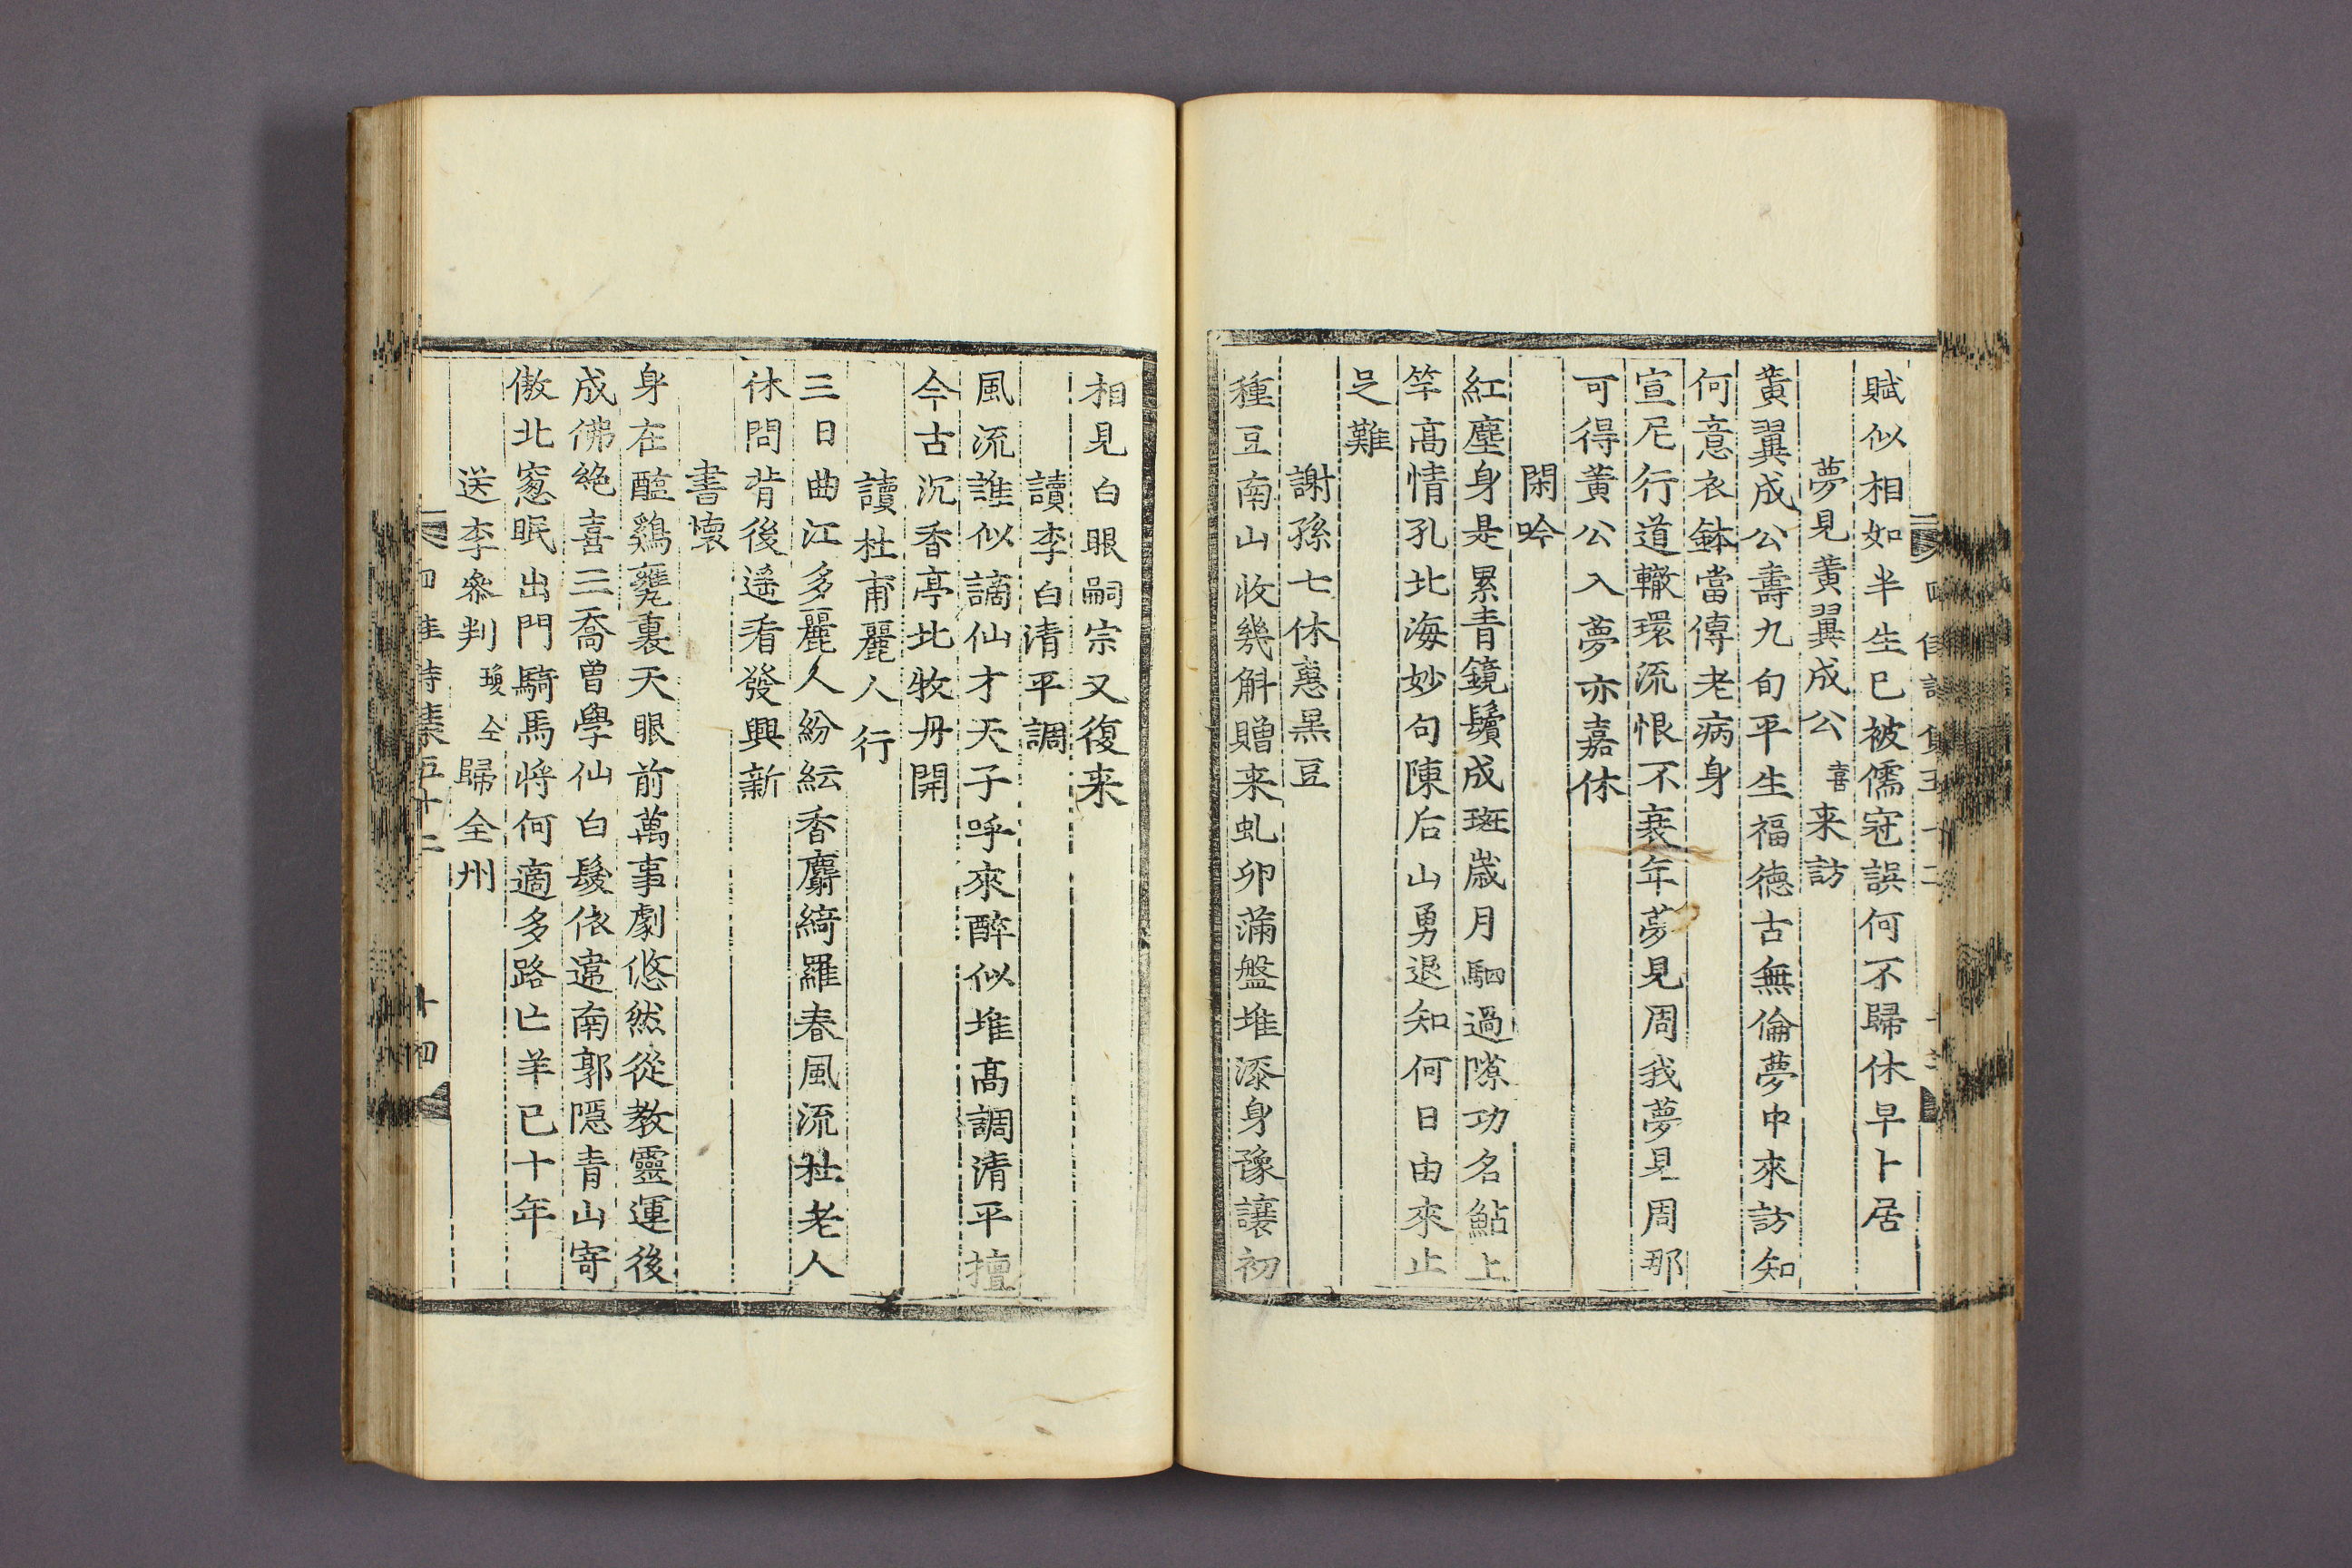 賦似相如半生已被儒冠誤何不歸休早卜居
夢見黃翼成公喜来訪
黃翼成公壽九旬平生福德古無倫夢中來訪知
何意衣鉢當傳老病身
宣尼行道轍環流恨不衰年夢見周我夢見周那
可得黃公入夢亦嘉休
閑吟
紅塵身是累青鏡鬢成斑歲月駟過隙功名鮎上
竿高情孔北海妙句陳后山勇退知何日由來止
足難
謝孫七休惠黑豆
種豆南山收幾斛贈来虬卯蒲盤堆漆身豫讓初
相見白眼嗣宗又復来
讀李白清平調
風流誰似謫仙才天子呼來醉似堆高調清平擅
今古沉香亭北牧丹開
讀杜甫麗人行
三日曲江多麗人紛紜香麝綺羅春風流杜老人
休問背後遙看發興新
書懷
身在醯鷄甕裏天眼前萬事劇悠然從教靈運後
成佛絶喜三喬曽學仙白髮依違南郭隱青山寄
傲北窓眠出門騎馬將何適多路亡羊已十年
送李叅判瓊仝歸全州
四佳詩集五十二
十四